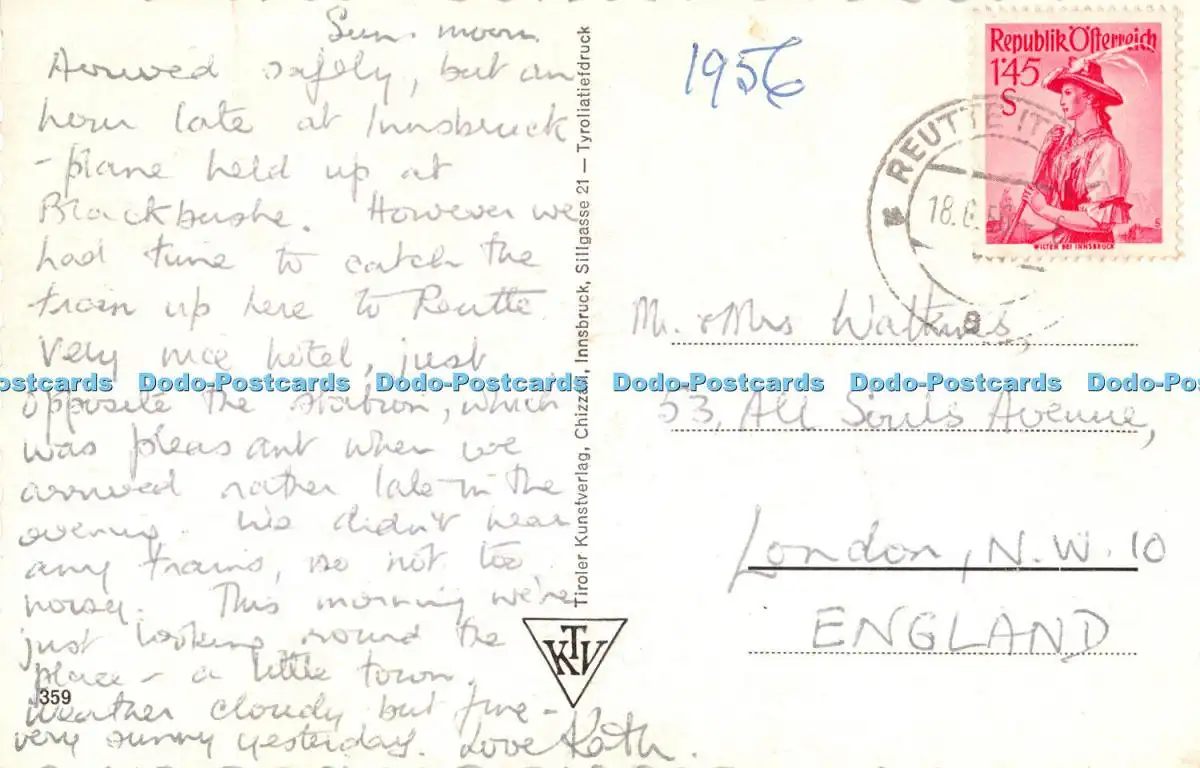 Sun. morn.
Arrived safely, but an
hour late at Innsbruck
- plane held up at
Blackbushe. However we
had time to catch the
train up here to Reutte
Very nice hotel, just
opposite the station, which
was pleasant when we
arrived rather late in the
evening. We didn't hear
any trains, so not too
noisy. This morning we're
just looking round the
place - a little town.
Weather cloudy but fine -
very sunny yesterday. Love Kath.
359
Tiroler Kunstverlag, Chizzali, Innsbruck, Sillgasse 21 — Tyroliatiefdruck
KTV
1956
Republik Österreich
1'45
S
WILTEN BEI INNSBRUCK
REUTTE
18.6.
a
Mr. & Mrs Watkins,
53, All Souls Avenue,
London, N.W. 10
ENGLAND
Dodo-Postcards Dodo-Postcards Dodo-Postcards Dodo-Postcards Dodo-Postcards Dodo-Postcards